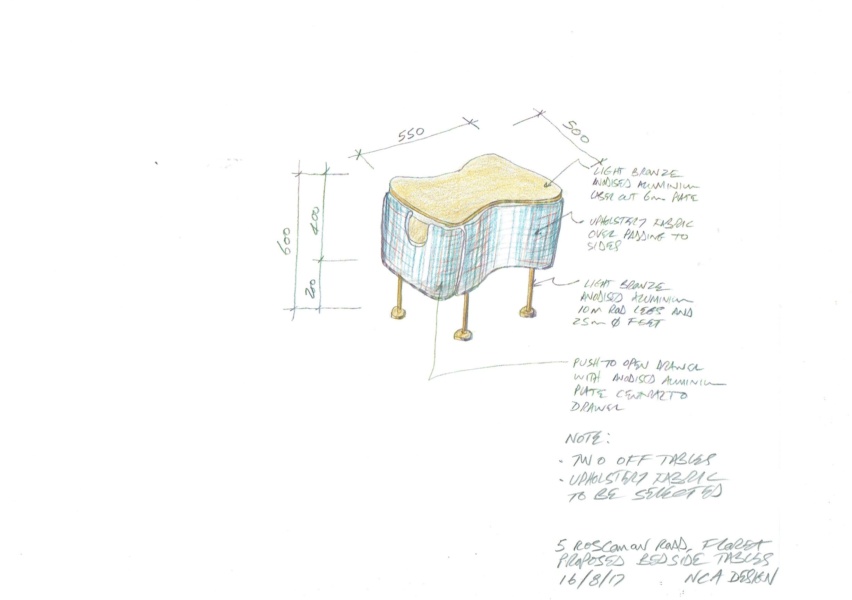 550
500
600
400
200
LIGHT BRONZE
ANODISED ALUMINIUM
LASER CUT 6mm PLATE
UPHOLSTERY FABRIC
OVER PADDING TO
SIDES
LIGHT BRONZE
ANODISED ALUMINIUM
10m ROD LEGS AND
25m Ø FEET
PUSH TO OPEN DRAWER
WITH ANODISED ALUMINIUM
PLATE TO
DRAWER
NOTE:
- TWO OFF TABLES
- UPHOLSTERY FABRIC
TO BE SELECTED
5 ROSCOMON ROAD,
PROPOSED BEDSIDE TABLES
16/8/17 NCA DESIGN